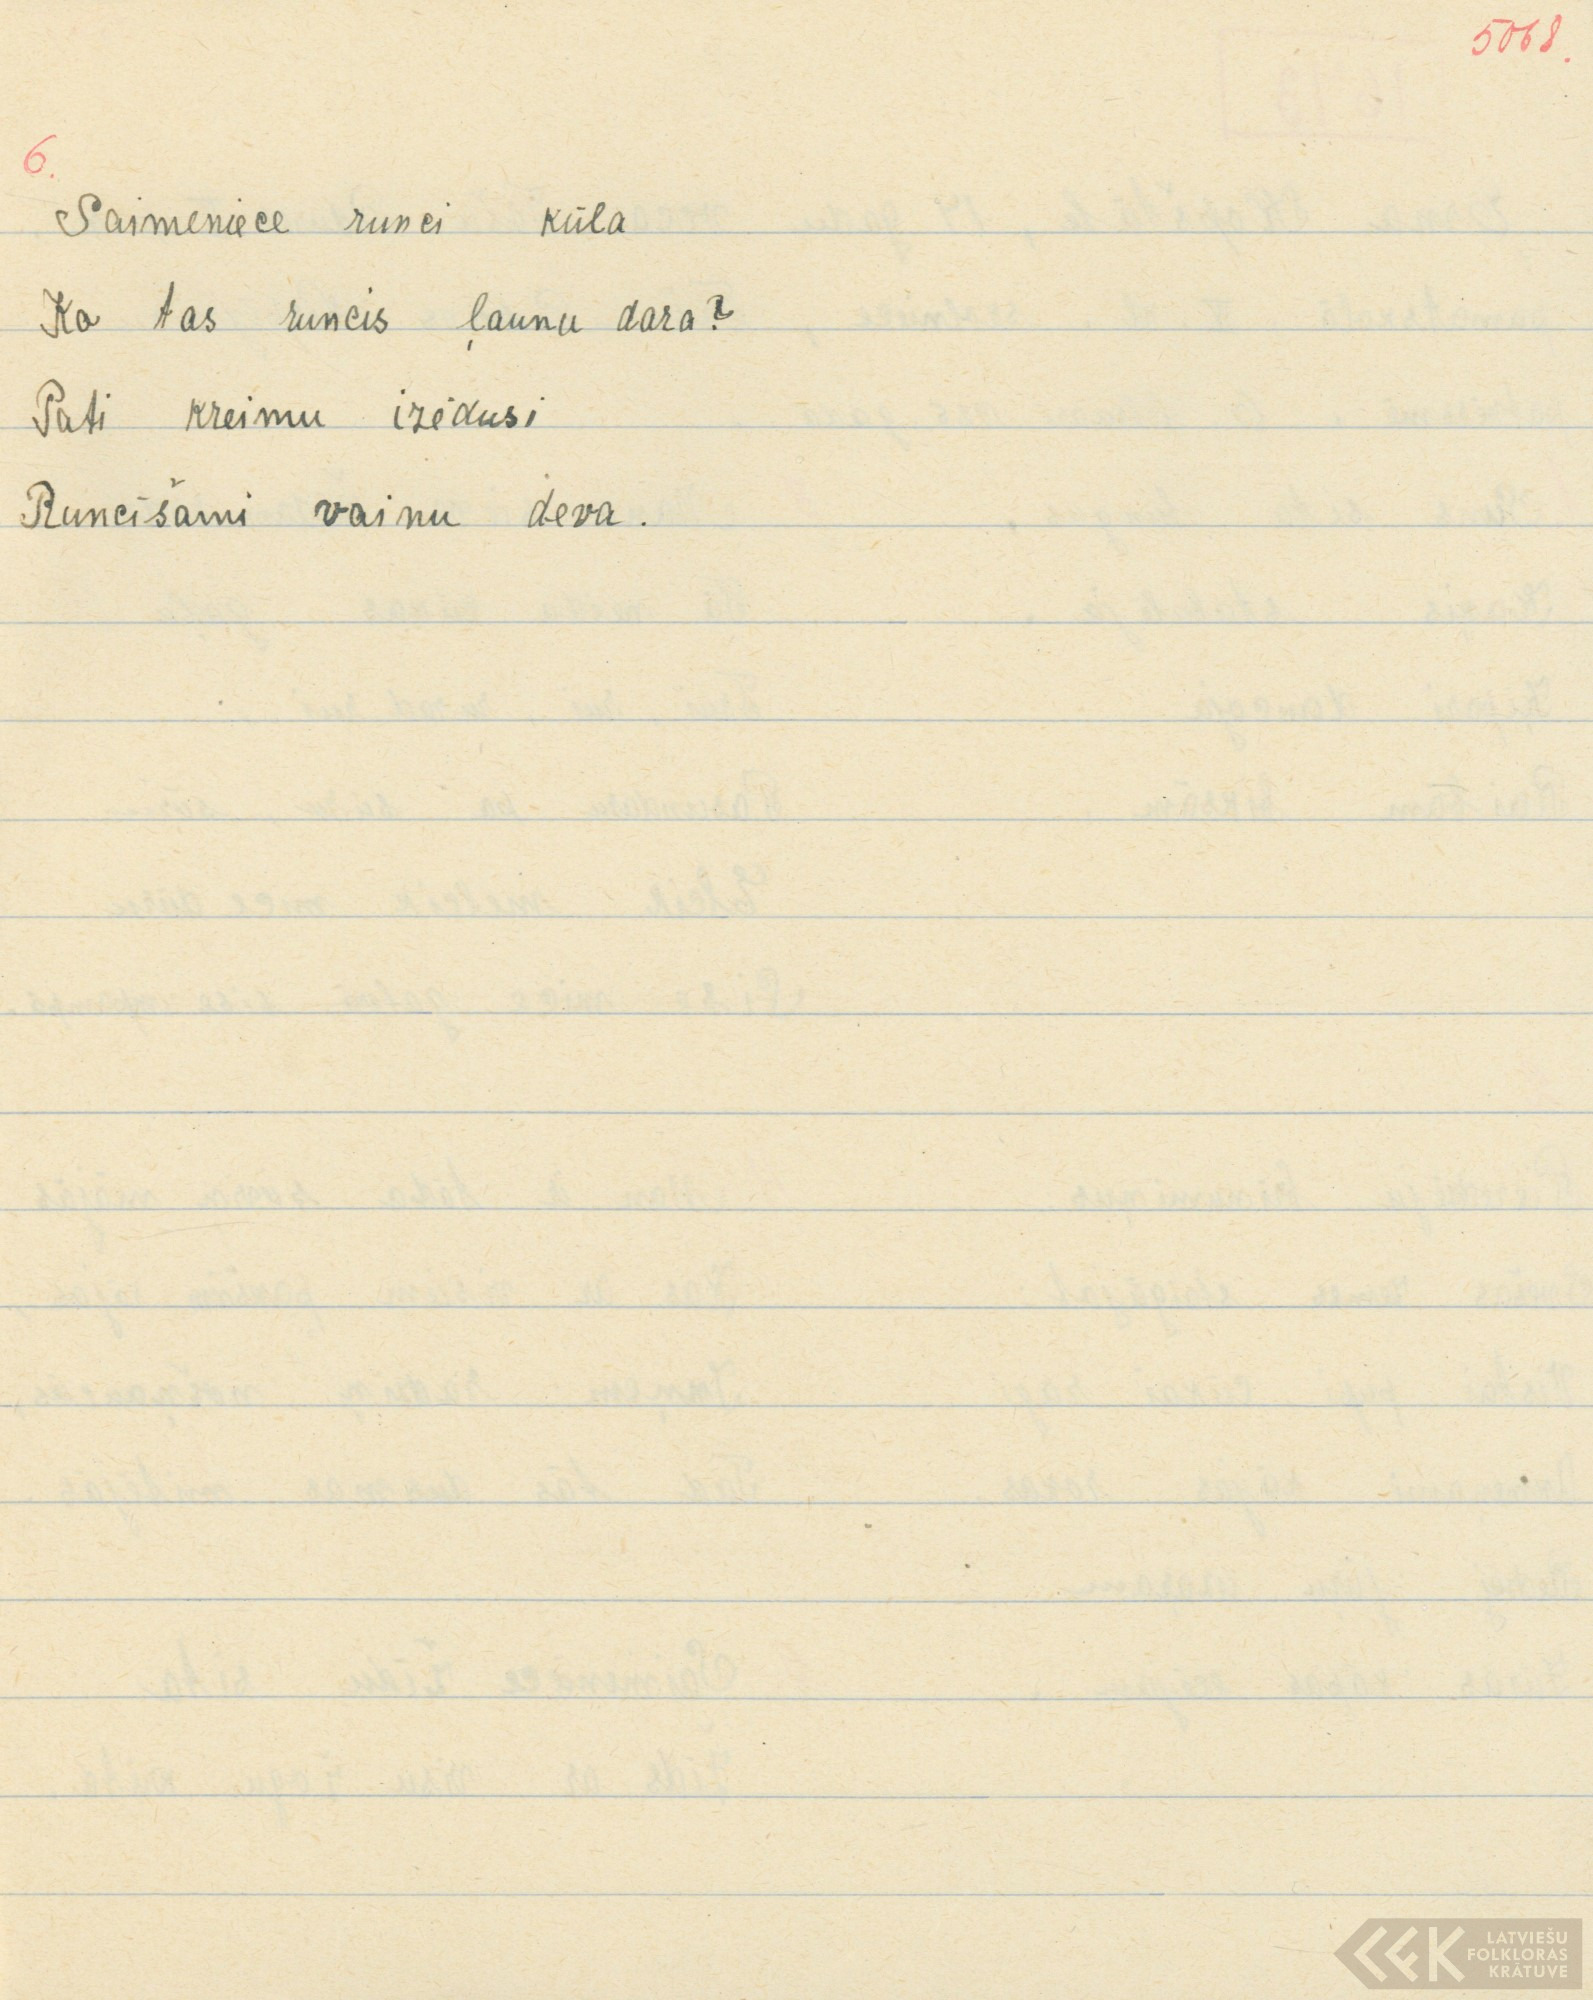 5068.
6.
Saimeniece runci kūla
Ko tas runcis ļaunu dara?
Pati kreimu izēdusi
Runcīšami vainu deva.
LFK
LATVIEŠU
FOLKLORAS
KRĀTUVE